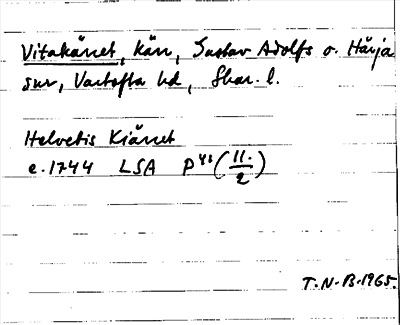 Vitakärret, kärr, Gustav Adolfs o. Härja
snr, Vartofta hd, Skar. l.
Helvetis Kiärret
c. 1744 LSA P 48 (11. / 2)
T. N-B. 1965.